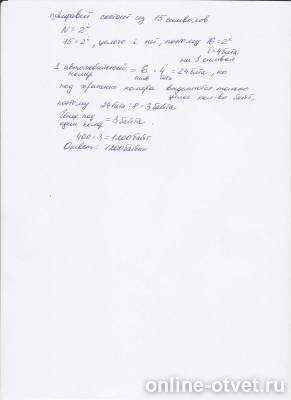 Алфавит состоит из 15 символов
N = 2^i
15 = 2^i, целого i нет, поэтому 16 = 2^i
i = 4 бита
на 1 символ
1 автомобильный номер = 6 · 4 = 24 бита, но
под хранение номера выделяется только
целое кол-во байт,
поэтому 24 бита : 8 = 3 байта
под один номер = 3 байта.
400 · 3 = 1200 байт
Ответ: 1200 байт
online-otvet.ru